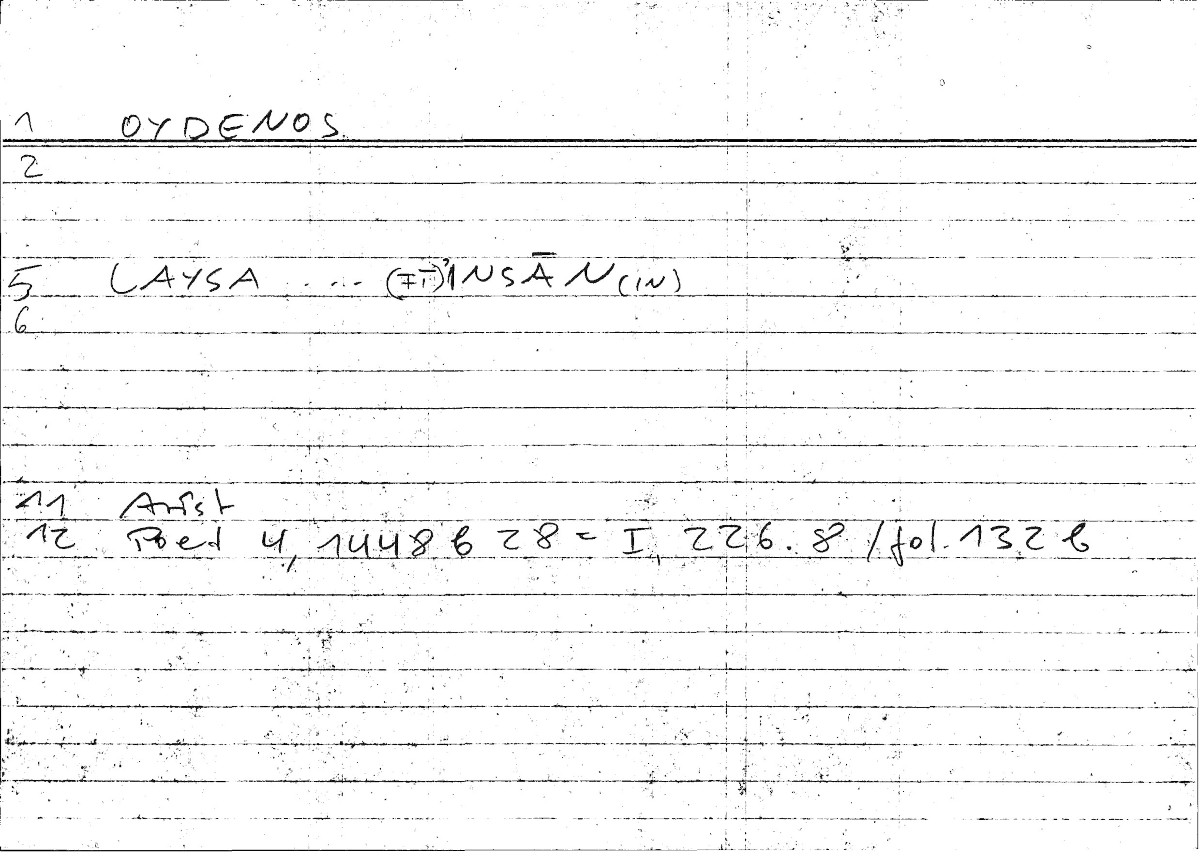 1 OYDENOS
2
5 LAYSA .... (II)'INSĀN(IN)
6
11 Arist
12 Poet 4,1448b28 = I, 226.8 /fol. 132b